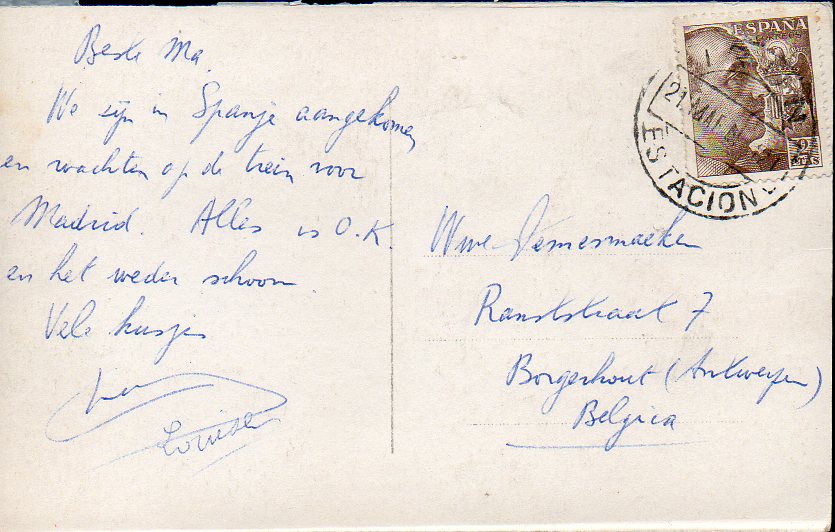 Beste Ma
We zijn in Spanje aangekomen
en wachten op de trein voor
Madrid. Alles is O.K.
en het weder schoon
Vele kusjes
Louise
Wwe Demesmaeken
Ranststraat 7
Borgerhout (Antwerpen)
Belgica
ESPAÑA
CORREOS
2
PTAS
21
ESTACION